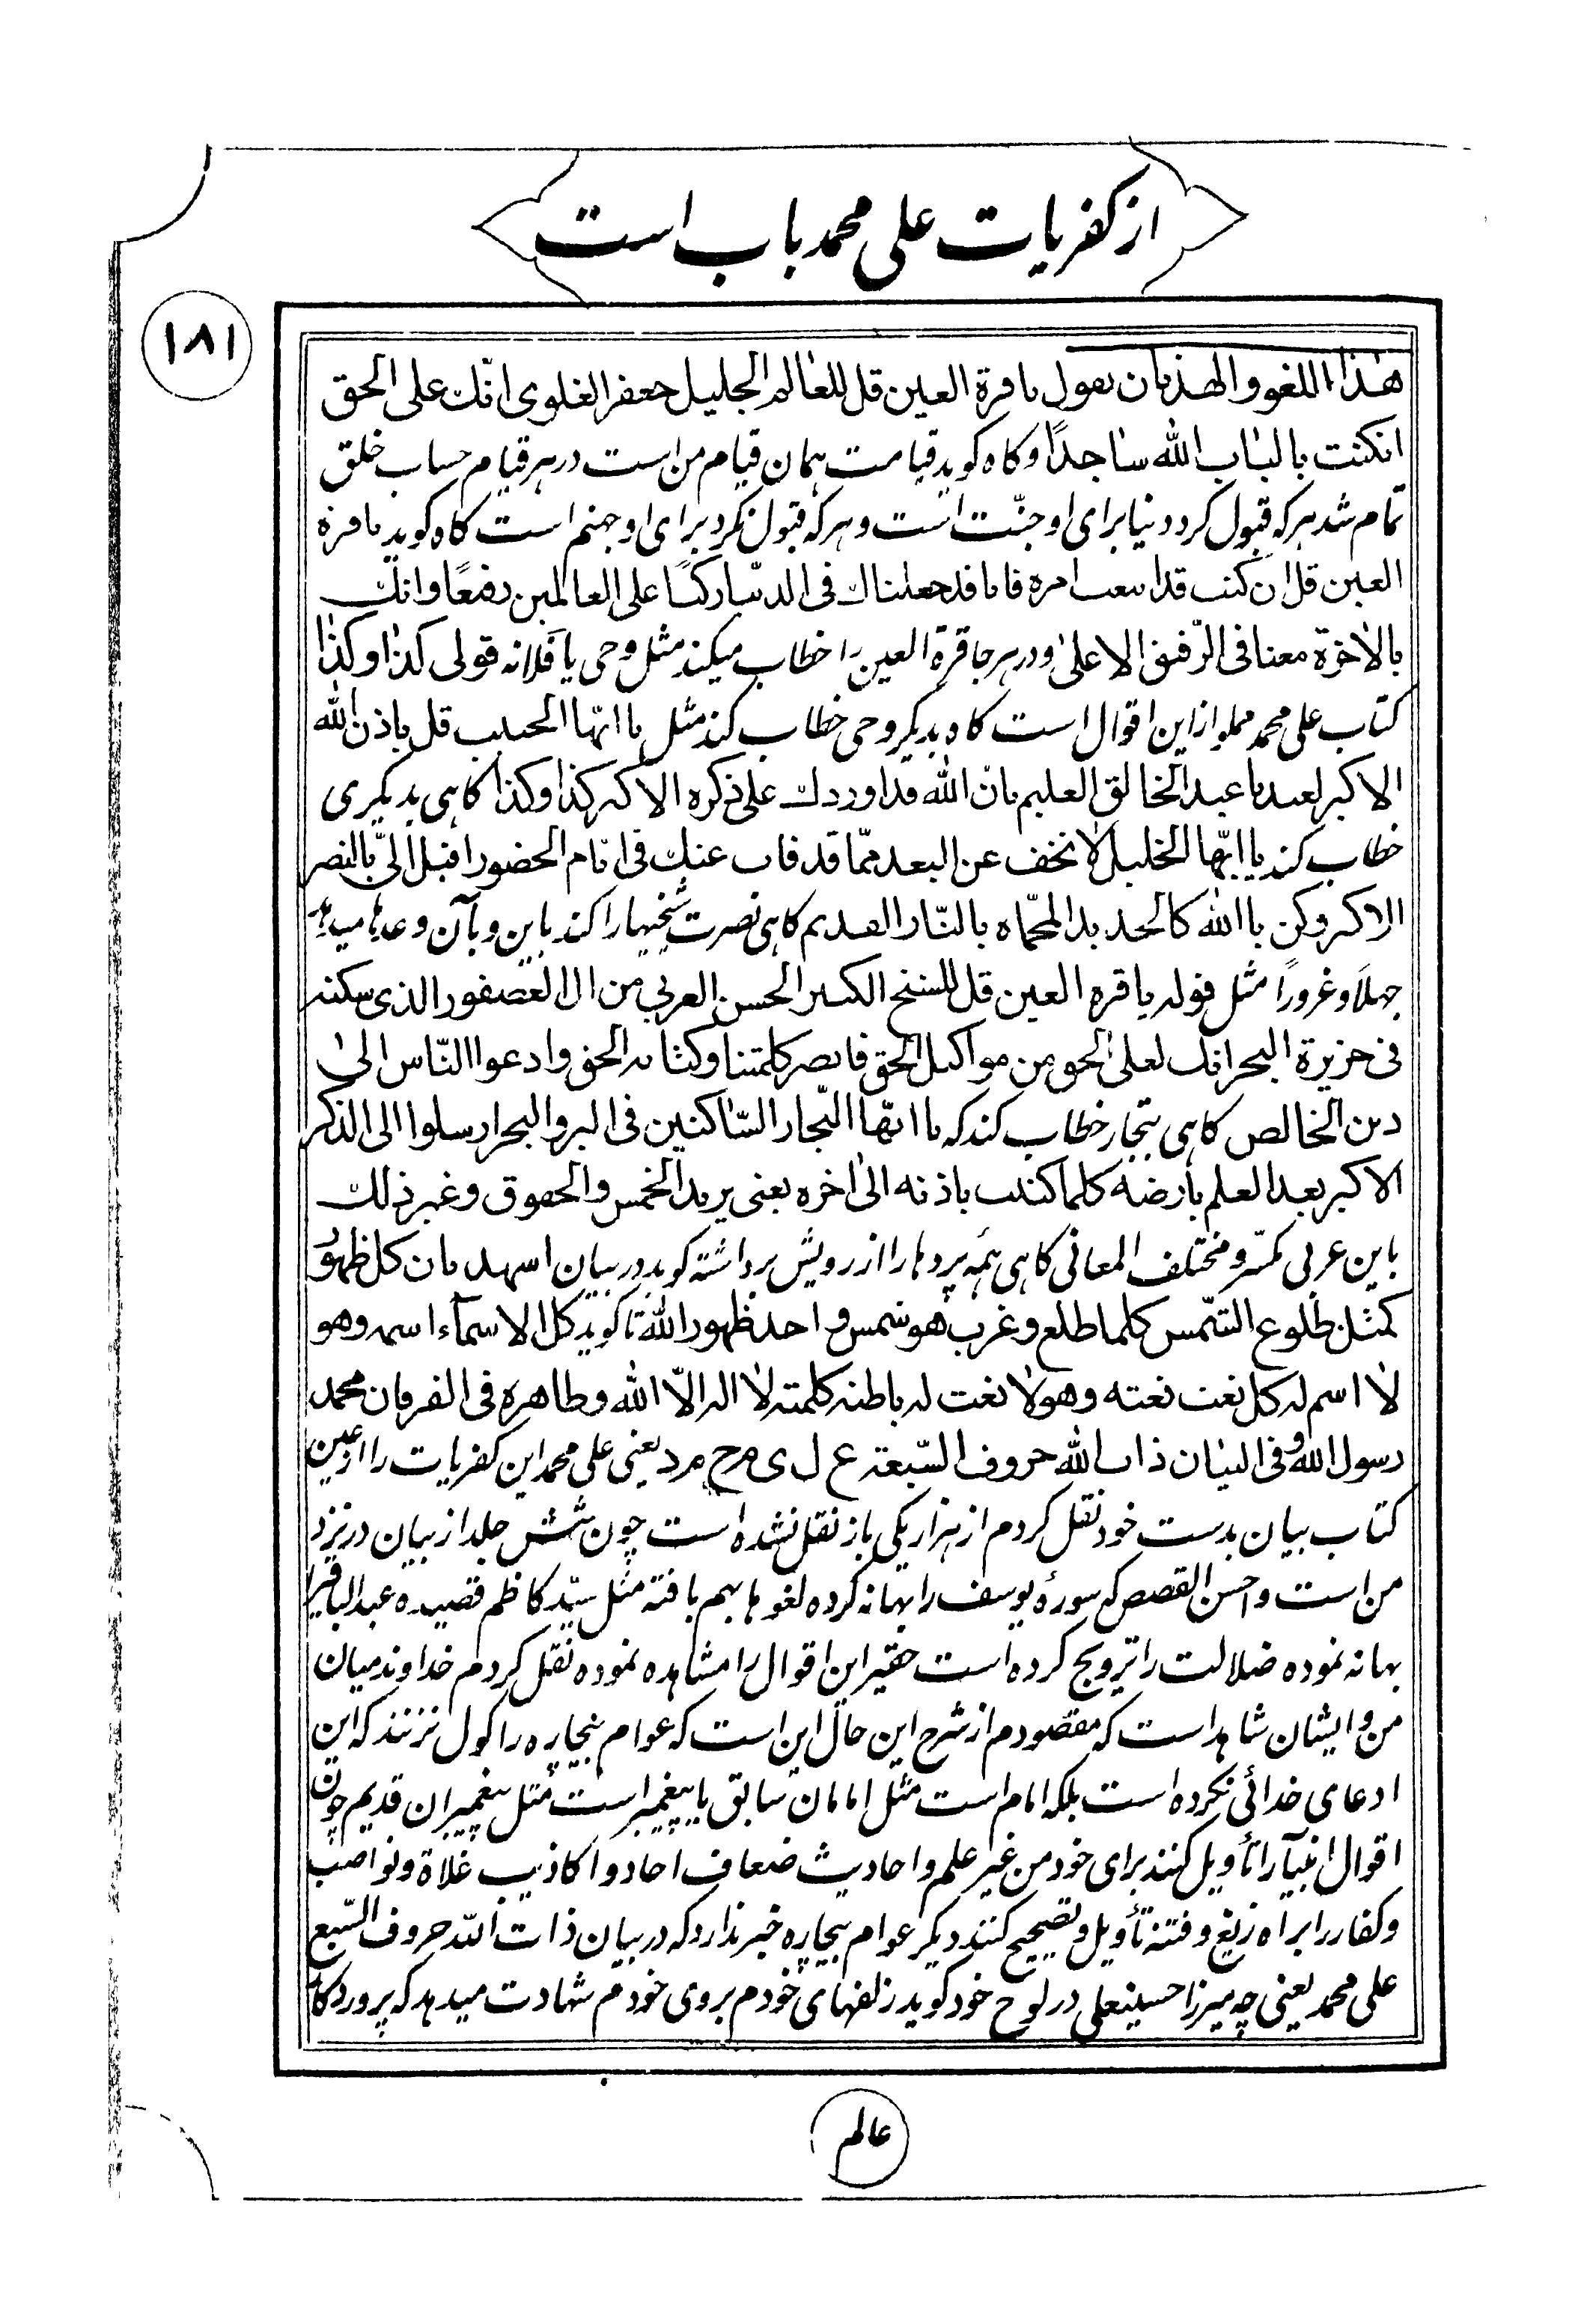 از کفریات علی محمد باب است
۱۸۱
هذا اللغو والهذیان یقول یا قرة العین قل للعالم الجلیل جعفر العلوی انّک علی الحق
انکنت بالباب الله ساجداً وکاه کوید قیامت همان قیام من است در هر قیام حساب خلق
تمام شد هر که قبول کرد دنیا برای او جنّت است و هر که قبول نکرد برای او جهنم است کاه کوید یا قرة
العین قل ان کنت قد اتبعت امره فانا قد جعلناک فی الدنیا رکنًا علی العالمین رفعًا وانک
بالاخرة معنا فی الرّفیق الاعلیٰ و در هر جا قرة العین را خطاب میکند مثل وحی یا فلانه قولی کذا وکذا
کتاب علی محمد مملو از این اقوال است کاه بدیکر وحی خطاب کند مثل یا ایّها الحبیب قل باذن الله
الاکبر لعبدنا عبد الخالق العلیم بان الله قد اوردک علی ذکره الاکبر کذا وکذا کاهی بدیکری
خطاب کند یا ایّها الخلیل لا تخف عن البعد ممّا قد فات عنک فی ایّام الحضور اقبل الیّ بالنصر
الاکبر وکن بالله کالحدید المحمّاه بالنّار القدیم کاهی نصرت شیخیها را کند باین و بآن وعدها میدهد
جهلاً و غروراً مثل قوله یا قرة العین قل للشیخ الکبیر الحسن العربی من ال العصفور الذی سکنه
فی جزیرة البحر انک لعلی الحق من مواکیل الحق فانصر کلمتنا وکتابه الحق وادعوا النّاس الیٰ
دین الخالص کاهی بتجار خطاب کند که یا ایّها التّجار السّاکنین فی البر والبحر ارسلوا الی الذکر
الاکبر بعد العلم بارضه کلما کتبت باذنه الیٰ اخره یعنی یرید الخمس والحقوق وغیر ذلک
باین عربی مکسّر و مختلف المعانی کاهی همّه پردها را از رویش برداشته کوید در بیان اشهد بان کل ظهور
کمثل طلوع الشّمس کلما طلع وغرب هو شمس واحد ظهور الله تا کوید کل الاسمآء اسمه وهو
لا اسم له کل نعت نعته وهو لا نعت له باطنه کلمته لا اله الاّ الله وظاهره فی الفرقان محمد
رسول الله وفی البیان ذات الله حروف السّبعة ع ل ی م ح م د یعنی علی محمد این کفریات را از عین
کتاب بیان بدست خود نقل کردم از هزار یکی باز نقل نشده است چون شش جلد از بیان در نزد
من است و احسن القصص که سورهٔ یوسف را بهانه کرده لغوها بهم بافته مثل سیّد کاظم قصیده عبد الباقی را
بهانه نموده ضلالت را ترویج کرده است حقیر این اقوال را مشاهده نموده نقل کردم خداوند میان
من و ایشان شاهد است که مقصودم از شرح این حال این است که عوام بیچاره را کول نزنند که این
ادعای خدائی نکرده است بلکه امام است مثل امامان سابق یا پیغمبر است مثل پیغمبران قدیم چون
اقوال انبیآ را تأویل کنند برای خود من غیر علم و احادیث ضعاف احاد و اکاذیب غلاة و نواصب
وکفار را براه زیغ و فتنه تأویل و تصحیح کنند دیکر عوام بیچاره خبر ندارد که در بیان ذات الله حروف السّبع
علی محمد یعنی چه میرزا حسینعلی در لوح خود کوید زلفهای خودم بروی خودم شهادت میدهد که پروردکار
عالم